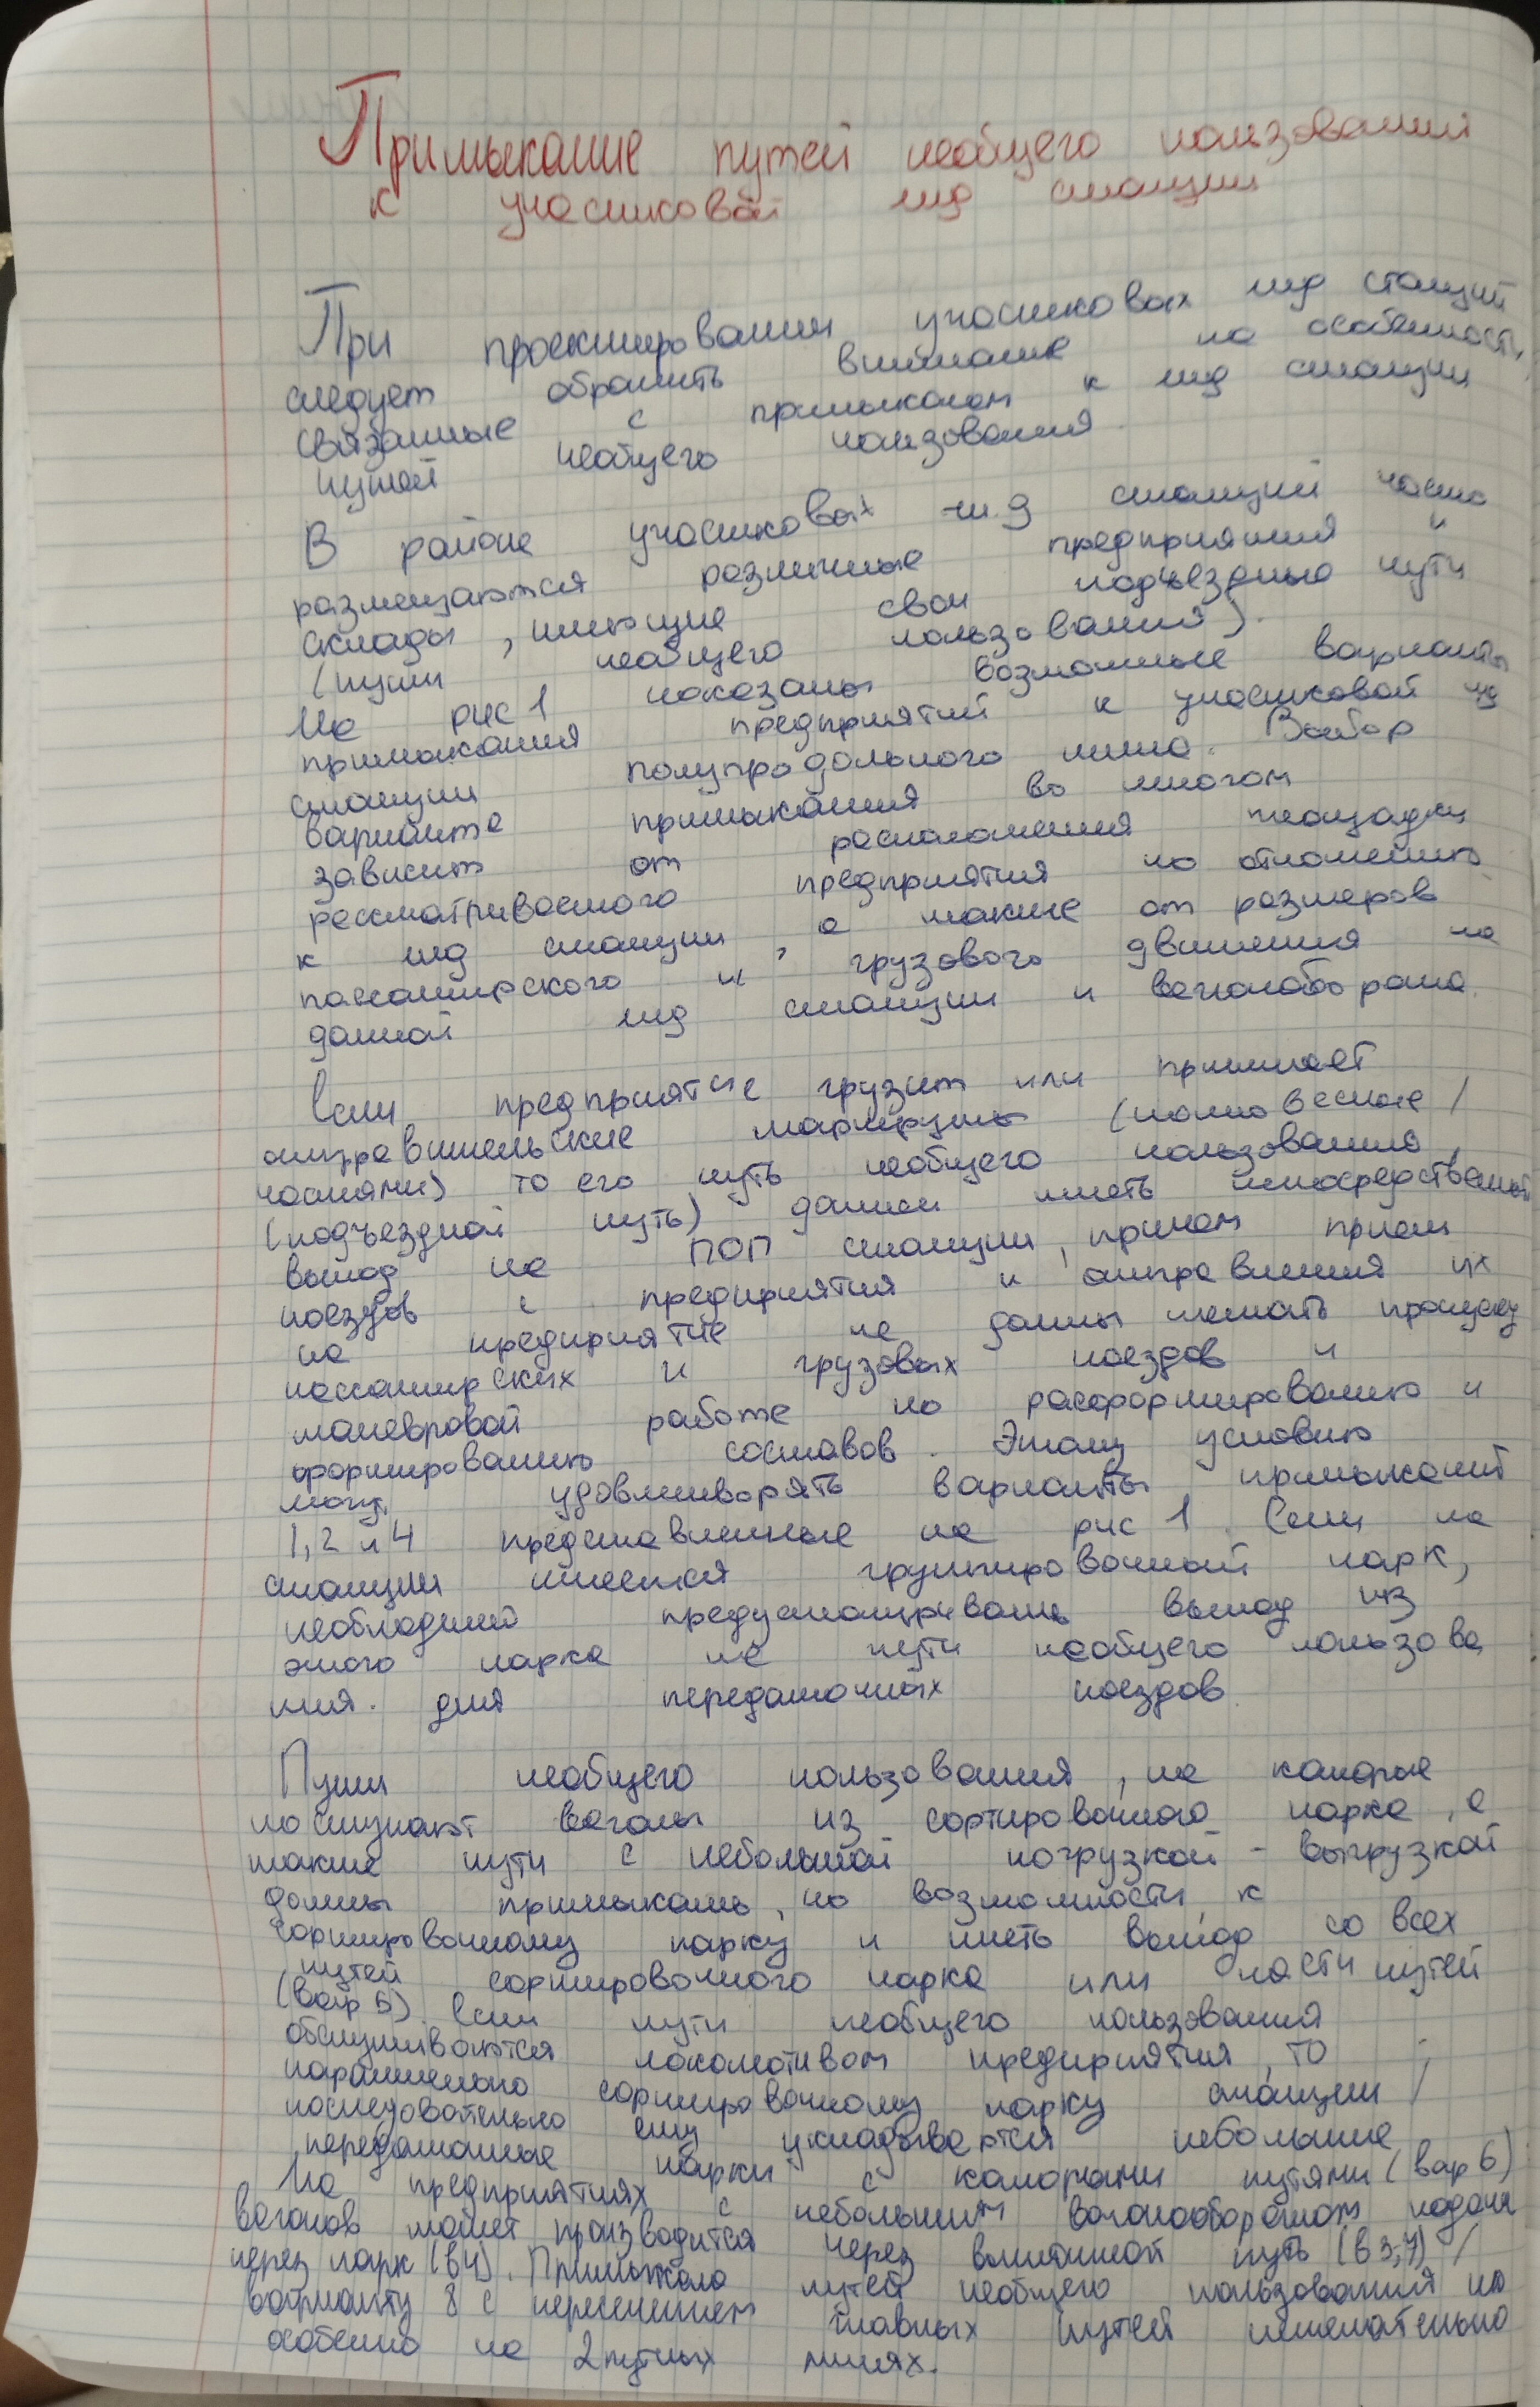 Примыкание путей необщего пользования
к участковой жд станции
При проектировании участковых жд станций
следует обратить внимание на особенности,
связанные с примыканием к жд станции
путей необщего пользования.
В районе участковых ж.д станций часто
размещаются различные предприятия и
склады, имеющие свои подъездные пути
(пути необщего пользования).
На рис 1 показаны возможные варианты
примыкания предприятий к участковой жд
станции полупродольного типа. Выбор
варианта примыкания во многом
зависит от расположения площадки
рассматриваемого предприятия по отношению
к жд станции, а также от размеров
пассажирского и грузового движения на
данной жд станции и вагонооборота.
Если предприятие грузит или принимает
отправительские маршруты (полновесные /
частями) то его путь необщего пользования
(подъездной путь) должен иметь непосредственный
выход на ПОП станции, причем прием
поездов с предприятия и отправления их
на предприятие не должны мешать пропуску
пассажирских и грузовых поездов и
маневровой работе по расформированию и
формированию составов. Этому условию
могут удовлетворять варианты примыканий
1, 2 и 4 представленные на рис 1. Если на
станции имеется группировочный парк,
необходимо предусматривать выход из
этого парка на пути необщего пользова
ния. для передаточных поездов.
Пути необщего пользования, на которые
поступают вагоны из сортировочного парка, а
также пути с небольшой погрузкой - выгрузкой
должны примыкать, по возможности, к
сортировочному парку и иметь выход со всех
путей сортировочного парка или части путей
(вар 5). Если пути необщего пользования
обслуживаются локомотивом предприятия, то
параллельно сортировочному парку станции /
последовательно ему укладывается небольшие
передаточные парки с которыми путями (вар 6)
На предприятиях с небольшим вагонооборотом подача
вагонов может производится через вытяжной путь (в 3,7) /
через парк (в4). Примыкание путей необщего пользования по
варианту 8 с пересечением главных путей нежелательно
особенно на 2путных линях.